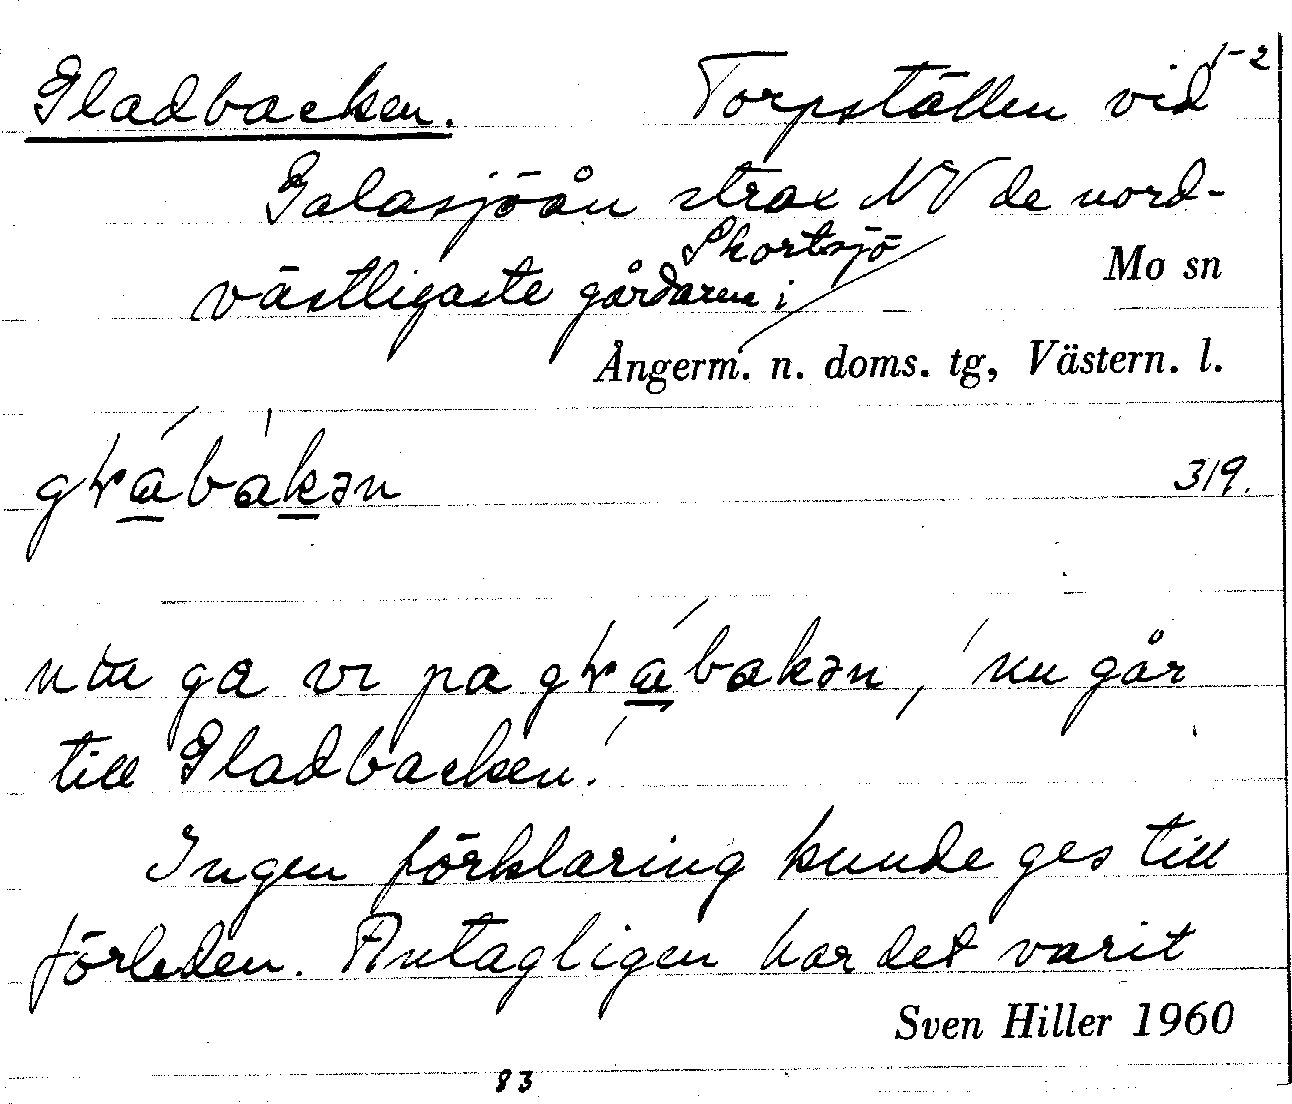 1-2
Gladbacken. Torpställen vid
Galasjöån strax NV de nord-
västligaste gårdarna i Skortsjö
Mo sn
Ångerm. n. doms. tg, Västern. l.
319.
till Gladbacken.'
Ingen förklaring kunde ges till
förleden. Antagligen har det varit
Sven Hiller 1960
83